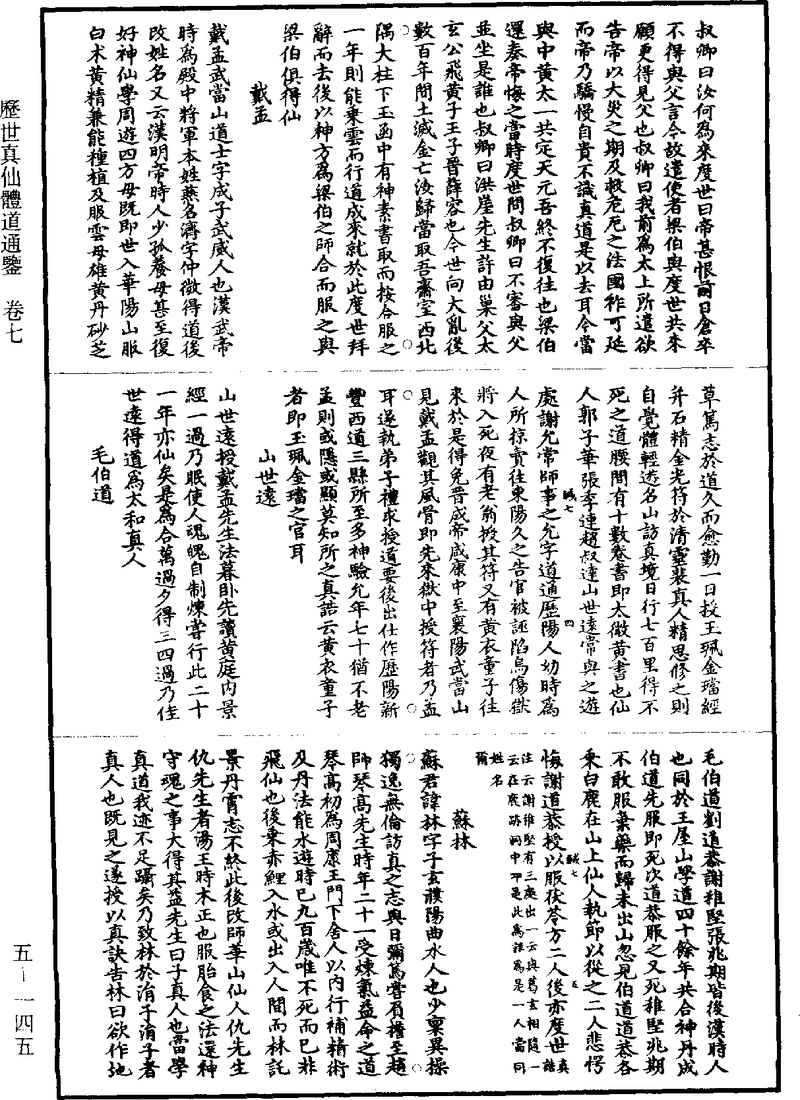 歷世真仙體道通鑒　卷七
叔卿曰汝何為來度世曰帝甚恨前日倉卒
不得與父言今故遣使者梁伯與度世共來
願更得見父也叔卿曰我前為太上所遣欲
告帝以大災之期及救危厄之法國祚可延
而帝乃驕慢自貴不識真道是以去耳今當
與中黃太一共定天元吾終不復往也梁伯
還奏帝悔之當時度世問叔卿曰不審與父
並坐是誰也叔卿曰洪崖先生許由巢父太
玄公飛黃子王子晉薛容也今世向大亂後
數百年間土滅金亡汝歸當取吾齋室西北
隅大柱下玉函中有神素書取而按合服之
一年則能乘雲而行道成來就於此度世拜
辭而去後以神方為梁伯之師合而服之與
梁伯俱得仙
戴孟
戴孟武當山道士字成子武威人也漢武帝
時為殿中將軍本姓燕名濟字仲微得道後
改姓名又云漢明帝時人少孤養母甚至復
好神仙學周遊四方母既即世入華陽山服
白朮黃精兼能種植及服雲母雄黃丹砂芝
草篤志於道久而愈勤一日授玉珮金璫經
并石精金光符於清靈裴真人精思修之則
自覺體輕遂名山訪真境日行七百里得不
死之道腰間有十數卷書即太微黃書也仙
人郭子華張季連趙叔達山世遠常與之遊
處謝允常師事之允字道通歷陽人幼時為
人所掠賣往東陽久之告官被誣陷烏傷獄
將入死夜有老翁授其符又有黃衣童子往
來於是得免晉咸帝咸康中至襄陽武當山
見戴孟觀其風骨即先來獄中授符者乃孟
耳遂執弟子禮求授道要後出仕作歷陽新
豐西道三縣所至多神驗允年七十猶不老
孟則或隱或顯莫知所之真誥云黃衣童子
者即玉珮金璫之官耳
山世遠
山世遠授戴孟先生法暮臥先讀黃庭內景
經一過乃眠使人魂魄自制煉嘗行此二十
一年亦仙矣是為合萬過夕得三四過乃佳
世遠得道為太和真人
毛伯道
毛伯道劉道恭謝稚堅張兆期皆後漢時人
也同於王屋山學道四十餘年共合神丹成
伯道先服即死次道恭服之又死稚堅兆期
不敢服棄藥而歸未出山忽見伯道道恭各
乘白鹿在山上仙人執節以從之二人悲愕
悔謝道恭授以服茯苓方二人後亦度世真誥
注云謝稚堅有三處出一云與葛玄相隨一
云在鹿跡洞中不是此為是一人當同
姓名
爾
蘇林
蘇君諱林字子玄濮陽曲水人也少稟異操
獨逸無倫訪真之志與日彌篤嘗負擔至趙
師琴高先生時年二十一受煉氣益命之道
琴高初為周康王門下舍人以內行補精術
及丹法能水遊時已九百歲唯不死而已非
飛仙也後乘赤鯉入水或出入人間而林託
景丹霄志不終此後改師華山仙人仇先生
仇先生者湯王時木正也服胎食之法還神
守魂之事大得其益先生曰子真人也當學
真道我迹不足躡矣乃致林於涓子涓子者
真人也既見之遂授以真訣告林曰欲作地
五—一四五